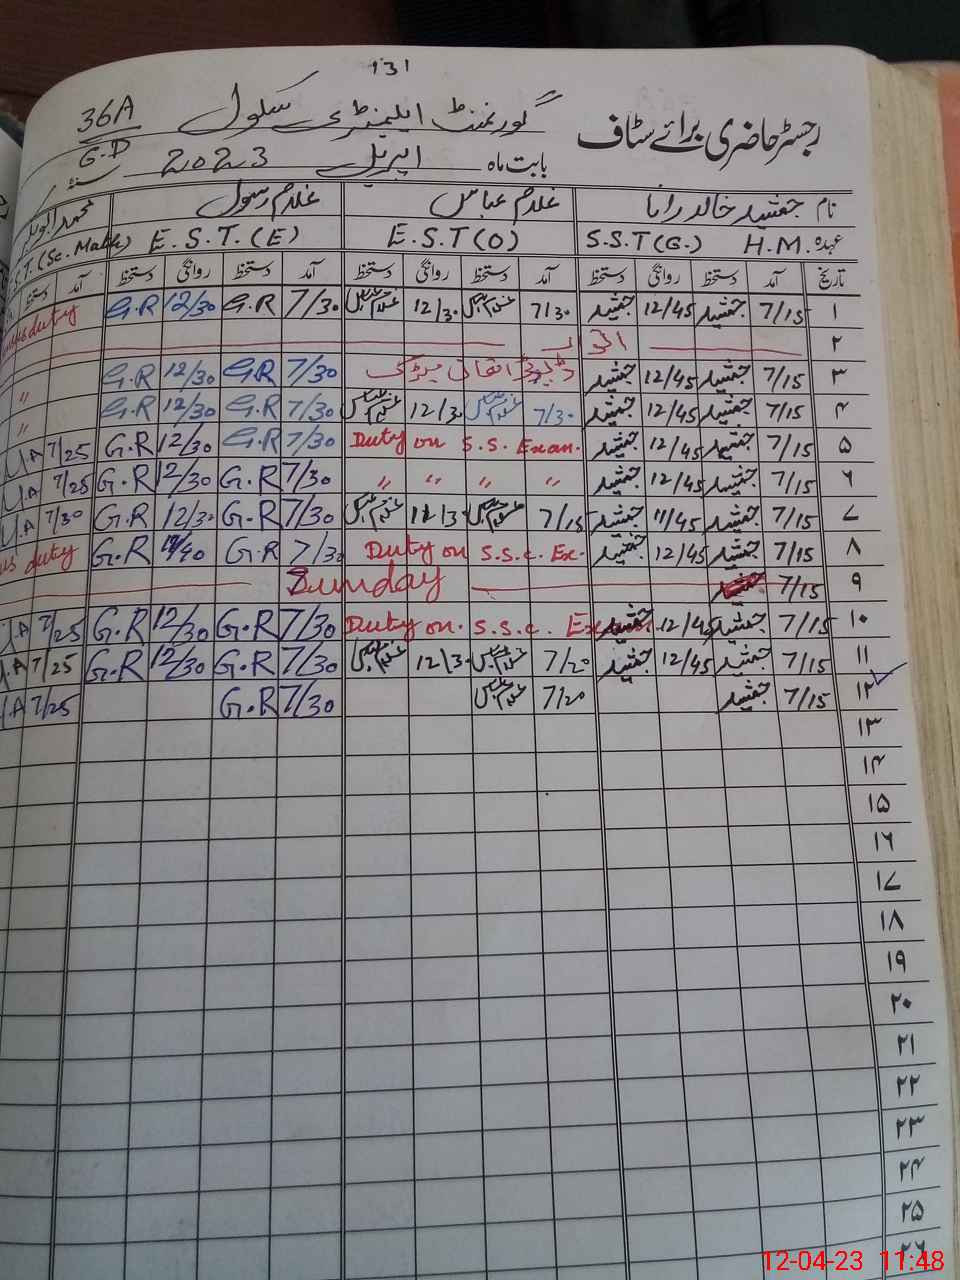 131
رجسٹر حاضری برائے سٹاف گورنمنٹ ایلیمنٹری سکول 36A
G.D
بابت ماہ اپریل 2023 سنہ
نام جمشید خالد رانا غلام عباس غلام رسول محمد
عہدہ H.M. S.S.T (G.) E.S.T (O) E.S.T. (E) S.T. (Sc. Math)
تاریخ آمد دستخط روانگی دستخط آمد دستخط روانگی دستخط آمد دستخط روانگی دستخط آمد دستخط
۱ 7/15 جمشید 12/45 جمشید 7/30 غلام عباس 12/30 غلام عباس 7/30 G.R 12/30 G.R duty
۲ اتوار
۳ 7/15 جمشید 12/45 جمشید 7/30 G.R 12/30 G.R "
۴ 7/15 جمشید 12/45 جمشید 7/30 غلام عباس 12/30 غلام عباس 7/30 G.R 12/30 G.R "
۵ 7/15 جمشید 12/45 جمشید Duty on S.S. Exam. 7/30 G.R 12/30 G.R 7/25 U.A
۶ 7/15 جمشید 12/45 جمشید " " " " 7/30 G.R 12/30 G.R 7/25 U.A
۷ 7/15 جمشید 11/45 جمشید 7/15 غلام عباس 12/30 غلام عباس 7/30 G.R 12/30 G.R 7/30 U.A
۸ 7/15 جمشید 12/45 جمشید Duty on S.S.C. Ex. 7/30 G.R G.R duty
۹ 7/15 جمشید Sunday
۱۰ 7/15 جمشید 12/45 جمشید Duty on. S.S.C. 7/30 G.R 12/30 G.R 7/25 U.A
۱۱ 7/15 جمشید 12/45 جمشید 7/20 غلام عباس 12/30 غلام عباس 7/30 G.R 12/30 G.R 7/25 U.A
۱۲ 7/15 جمشید 7/20 غلام عباس 7/30 G.R 7/25 U.A
۱۳
۱۴
۱۵
۱۶
۱۷
۱۸
۱۹
۲۰
۲۱
۲۲
۲۳
۲۴
۲۵
۲۶
12-04-23 11:48